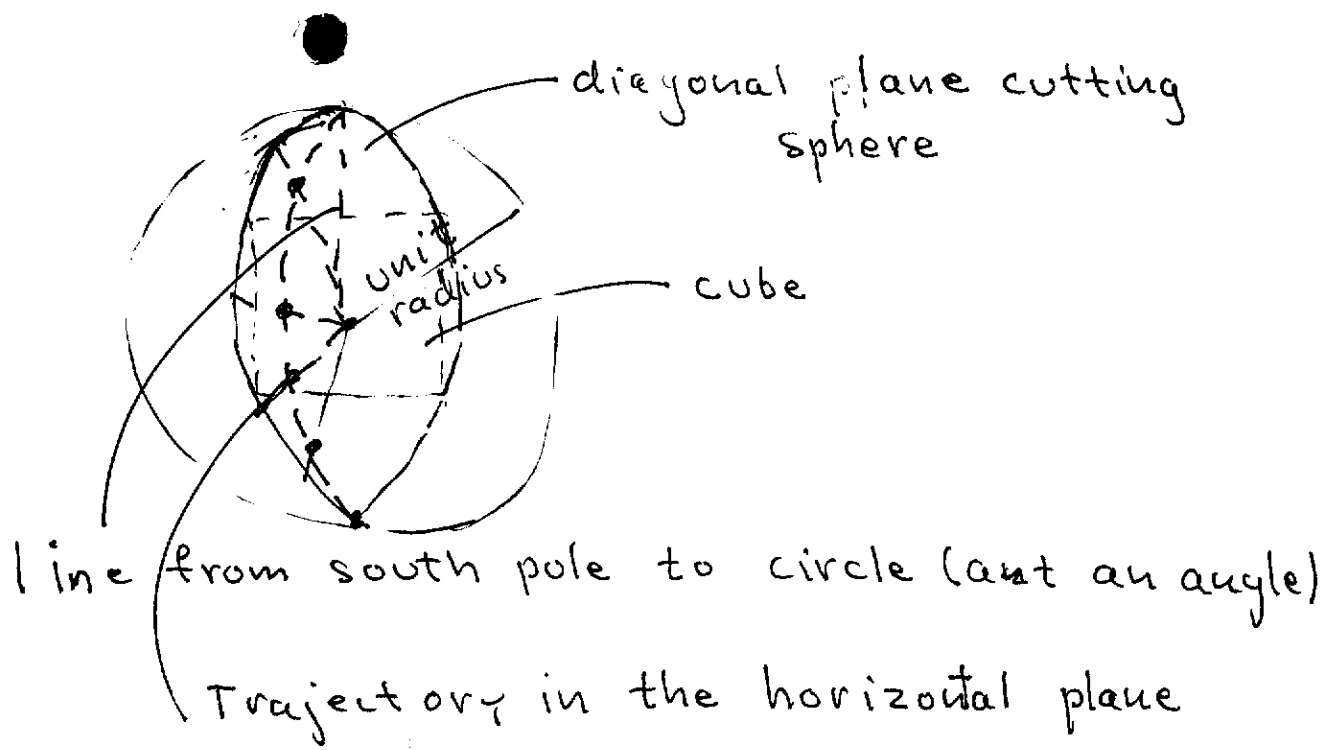 diagonal plane cutting
sphere
unit
radius
cube
line from south pole to circle (at an angle)
Trajectory in the horizontal plane